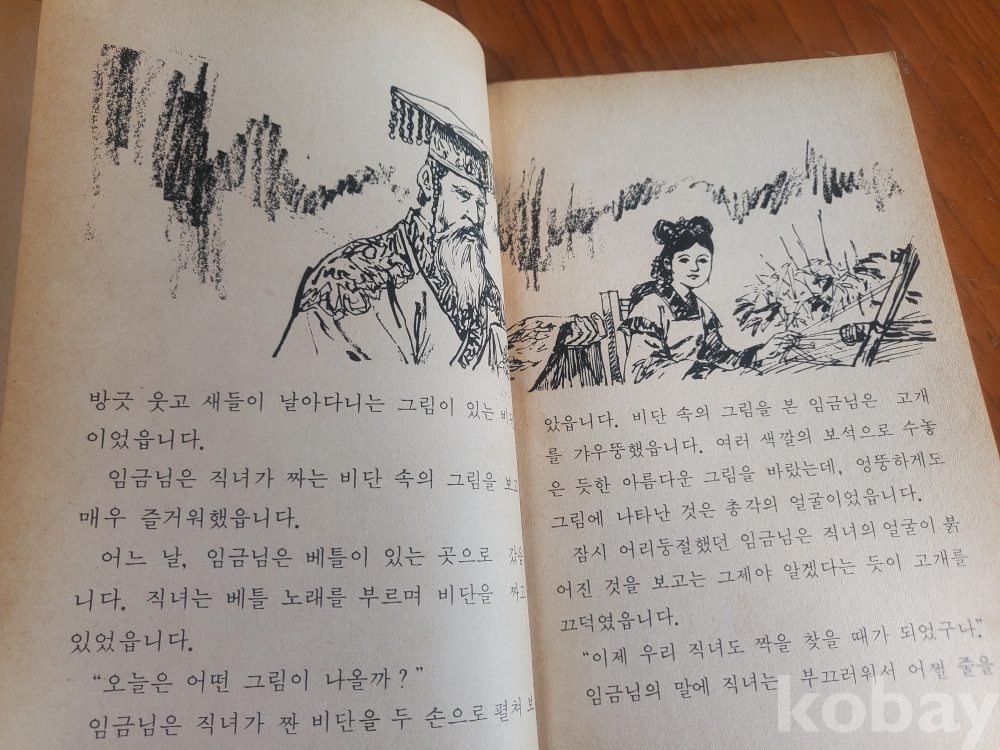 방긋 웃고 새들이 날아다니는 그림이 있는 비단
이었읍니다.
임금님은 직녀가 짜는 비단 속의 그림을 보고
매우 즐거워했읍니다.
어느 날, 임금님은 베틀이 있는 곳으로 갔읍
니다. 직녀는 베틀 노래를 부르며 비단을 짜고
있었읍니다.
“오늘은 어떤 그림이 나올까?”
임금님은 직녀가 짠 비단을 두 손으로 펼쳐 보
았읍니다. 비단 속의 그림을 본 임금님은 고개
를 갸우뚱했읍니다. 여러 색깔의 보석으로 수놓
은 듯한 아름다운 그림을 바랐는데, 엉뚱하게도
그림에 나타난 것은 총각의 얼굴이었읍니다.
잠시 어리둥절했던 임금님은 직녀의 얼굴이 붉
어진 것을 보고는 그제야 알겠다는 듯이 고개를
끄덕였읍니다.
“이제 우리 직녀도 짝을 찾을 때가 되었구나.”
임금님의 말에 직녀는 부끄러워서 어쩔 줄을
kobay